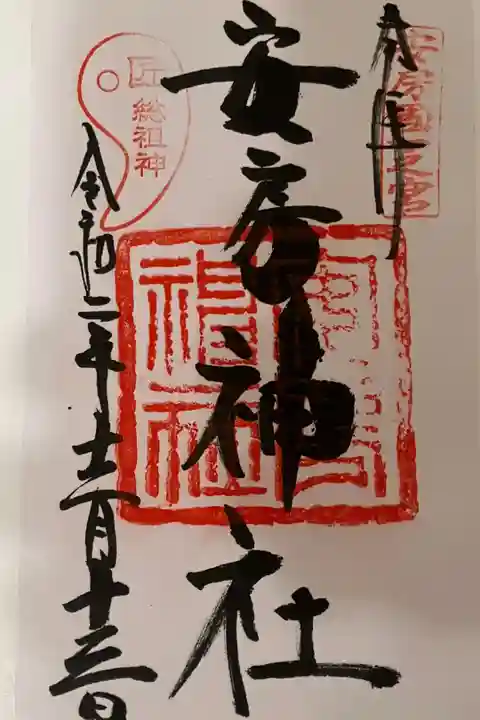 奉拝
安房國一之宮
安房神社
匠総祖神
令和二年十一月十三日